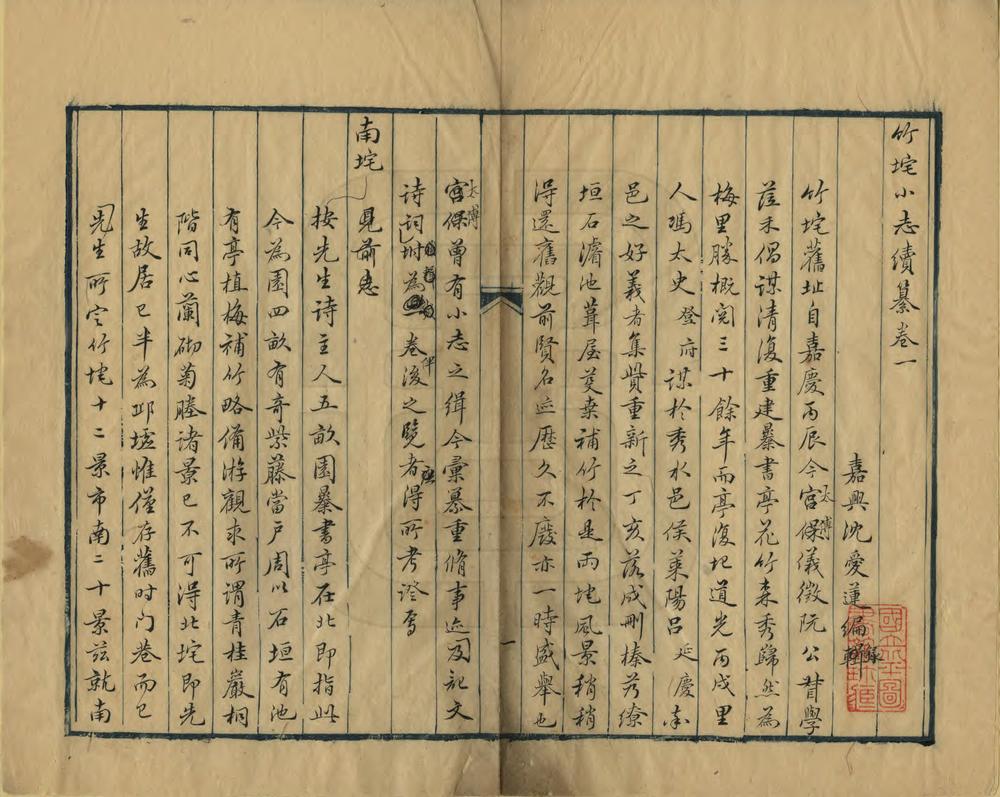 竹垞小志續纂卷一
嘉興沈愛蓮編錄
竹垞舊址自嘉慶丙辰今宮太傅保儀徵阮公督學
莅禾倡謀清復重建暴書亭花竹森秀歸然為
梅里勝概閱三十餘年而亭復圮道光丙戌里
人馮太史登府謀於秀水邑侯萊陽呂延慶商
邑之好義者集貲重新之丁亥落成刪榛芳繚
垣石濬池葺屋蔓桒補竹於是兩垞風景稍稍
得還舊觀前賢名迹歷久不廢亦一時盛舉也
太傅宮保曾有小志之緝今彙纂重脩事迹及記文
诗词坿為卷俾後之覽者得所考證焉
南垞 見前志
按先生诗主人五畝園暴書亭在北即指此
今為園四畝有奇紫藤當戶周以石垣有池
有亭植梅補竹略備游觀求所謂青桂嚴桐
階同心蘭砌菊塍諸景已不可得北垞即先
生故居已半為邱墟惟僅存舊时门巷而已
先生所定竹垞十二景市南二十景茲就南
一